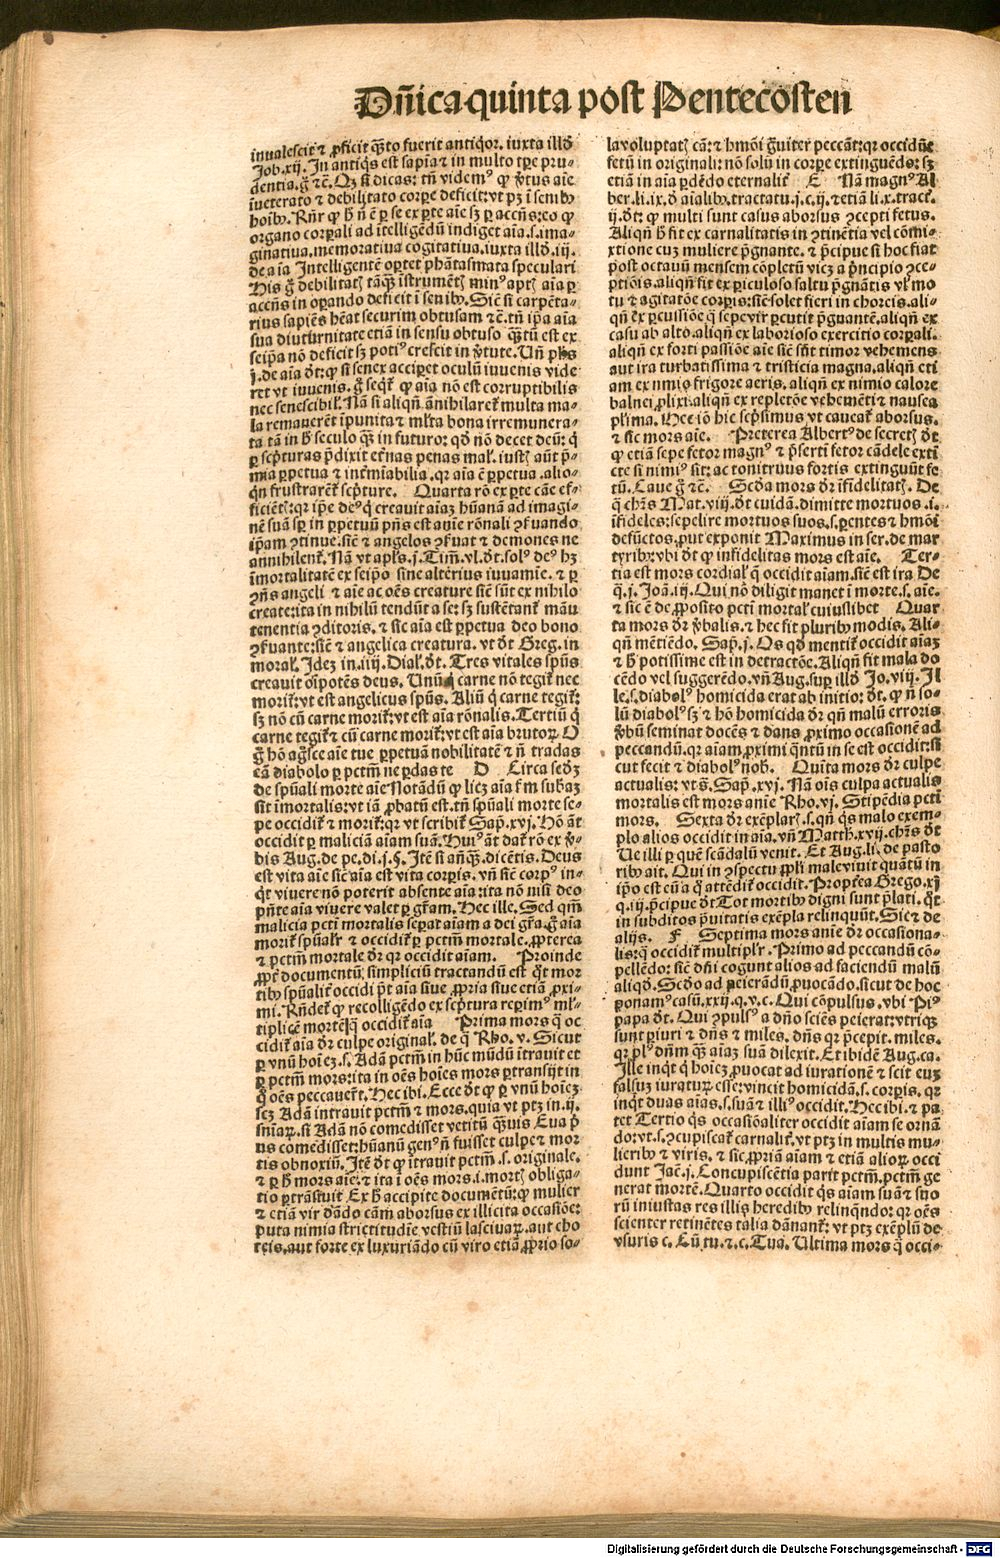 Dn̄ica quinta post Pentecosten
inualescit ⁊ ꝓficit q̄ꝫto fuerit antiq̇or. iuxta illd̄
Job. xij. In antiq̇s est sapīa ⁊ in multo tꝑe pru-
dentia. g̊ ⁊c̄. Qꝫ si dicas: tn̄ videmꝰ ꝙ v̇tus aīe
īueterato ⁊ debilitato corꝑe deficit: vt pꝫ ī senibꝰ
hoībꝰ. Rn̄r ꝙ h̄ n̄ ē ꝑ se ex ꝑte aīe sꝫ ꝑ accn̄s: eo ꝙ
organo corꝑali ad ītelligēdū indiget aīa. s. ima-
ginatiua. memoratiua cogitatiua. iuxta illd̄. iij.
de aīa Intelligentē oꝑtet phātasmata speculari
His g̊ debilitatꝭ tāq̄ꝫ īstrumētꝭ minꝰ aptꝭ aīa ꝑ
accn̄s in oꝑando deficit ī senibꝰ. Sic̄ si carpēta-
rius sapiēs hēat securim obtusam ⁊c̄. tn̄ ip̄a aīa
sua diuturnitate etiā in sensu obtuso q̄ꝫtū est ex
seip̄a nō deficit sꝫ potiꝰ crescit in v̇tute. Un̄ ph̄s
j. de aīa dt̄: ꝙ si senex acciꝑet oculū iuuenis vide
ret vt iuuenis. g̊ seqt᷑ ꝙ aīa nō est corruptibilis
nec senescibil̓. Nā si aliqn̄ ānihilaret᷑ multa ma-
la remanerēt īpunita ⁊ ml̓ta bona irremunera-
ta tā in h̄ seculo q̄ꝫ in futuro: qd̓ nō decet deū: q̇
ꝑ scp̄turas p̄dixit et̓nas penas mal̓. iustꝭ aūt p̄-
mia ꝑpetua ⁊ int̓mīabilia. qꝛ aīa ē ꝑpetua. alio-
q̇n frustrarēt᷑ scp̄ture. Quarta rō ex ꝑte cāe ef-
ficiētꝭ: qꝛ ip̄e deꝰ q̇ creauit aīaꝫ hūanā ad imagi-
nē suā sꝑ in ꝑpetuū pn̄s est aīe rōnali ꝯẜuando
ip̄am ꝯtinue: sic̄ ⁊ angelos ꝯẜuat ⁊ demones ne
annihilent᷑. Nā vt apl̓s. j. Tim̄. vl. dt̄. solꝰ deꝰ hꝫ
īmortalitatē ex seip̄o sine alteriꝰ iuuamīe. ⁊ ꝑ
ꝯn̄s angeli ⁊ aīe ac oēs creature sic̄ sūt ex nihilo
create: ita in nihilū tendūt a se: sꝫ sustētant᷑ māu
tenentia ꝯditoris. ⁊ sic aīa est ꝑpetua deo bono
ꝯẜuante: sic̄ ⁊ angelica creatura. vt dt̄ Greg. in
moral̓. Ideꝫ in. iiij. Dial̓. dt̄. Tres vitales spūs
creauit oīpotēs deus. Unū q̇ carne nō tegit᷑ nec
morit᷑: vt est angelicus spūs. Aliū q̇ carne tegit᷑:
sꝫ nō cū carne morit᷑: vt est aīa rōnalis. Tertiū q̇
carne tegit᷑ ⁊ cū carne morit᷑: vt est aīa brutoꝝ. O
g̊ hō ag̊sce aīe tue ꝑpetuā nobilitatē ⁊ n̄ tradas
eā diabolo ꝑ pctm̄ ne ꝑdas te D Circa sed̓ꝫ
de spūali morte aīe Notādū ꝙ licꝫ aīa f̓m subaꝫ
sit īmortalis: vt iā ꝓbatū est. tn̄ spūali morte se-
pe occidit᷑ ⁊ morit᷑: qꝛ vt scribit᷑ Sap̄. xvj. Hō āt
occidit ꝑ maliciā aīam suā. Huiꝰ āt dat᷑ rō ex v̇-
bis Aug. de pe. di. j. §. Itē si añq̄ꝫ. dicētis. Deus
est vita aīe sic̄ aīa est vita corꝑis. vn̄ sic̄ corpꝰ in-
q̇t viuere nō poterit absente aīa: ita nō nisi deo
pn̄te aīa viuere valet ꝑ gr̄am. Hec ille. Sed qm̄
malicia pcti mortalis seꝑat aīam a dei gr̄a. g̊ aīa
morit᷑ spūalr̓ ⁊ occidit᷑ ꝑ pctm̄ mortale. ꝓpterea
⁊ pctm̄ mortale dr̓ qꝛ occidit aīam. Proinde
ꝓpt̓ documentū simpliciū tractandū est q̇t mor
tibꝰ spūalit᷑ occidi pt̄ aīa siue ꝓpria siue etiā ꝓxi-
mi. Rn̄det᷑ ꝙ recolligēdo ex scp̄tura reꝑimꝰ ml̓-
tiplicē mortē q̄ occidit᷑ aīa Prima mors q̄ oc
cidit᷑ aīa dr̓ culpe original̓. de q̄ Rho. v. Sicut
ꝑ vnū hoīeꝫ. s. Adā pctm̄ in hūc mūdū ītrauit et
ꝑ pctm̄ mors: ita in oēs hoīes mors ꝑtransijt in
q̇ oēs peccauert̄. Hec ibi. Ecce dt̄ ꝙ ꝑ vnū hoīeꝫ.
scꝫ Adā intrauit pctm̄ ⁊ mors. quia vt ptꝫ in. ij.
sn̄iaꝝ. si Adā nō comedisset vetitū q̄ꝫuis Eua p̓
us comedisset: hūanū genꝰ n̄ fuisset culpe ⁊ mor
tis obnoxiū. Itē dt̄ ꝙ ītrauit pctm̄. s. originale.
⁊ ꝑ h̄ mors aīe: ⁊ ita ī oēs mors. i. mortꝭ obliga-
tio ꝑtrāsiuit Ex h̄ accipite documētū: ꝙ mulier
⁊ etiā vir dādo cām aborsus ex illicita occasiōe:
puta nimia strictitudīe vestiū lasciuaꝝ. aut cho
reis. aut forte ex luxuriādo cū viro etiā ꝓprio so-
la voluptatꝭ cā: ⁊ hmōi g̊uiter peccāt: qꝛ occidūt
fetū in originali: nō solū in corꝑe extinguēdo: sꝫ
etiā in aīa ꝑdēdo eternalit᷑ E Nā magnꝰ Al
ber. li. ix. d̓ aīalibꝰ. tractatu. j. c. ij. ⁊ etiā li. x. tract.
ij. dt̄: ꝙ multi sunt casus aborsus ꝯcepti fetus.
Aliqn̄ h̄ fit ex carnalitatis in ꝯtinētia vel cōmi-
xtione cuꝫ muliere p̄gnante. ⁊ p̄cipue si hoc fiat
post octauū mensem cōpletū vicꝫ a ṗncipio ꝯce-
ptiōis. aliqn̄ fit ex ꝑiculoso saltu p̄gnātis vl̓ mo
tu ⁊ agitatōe corꝑis: sic̄ solet fieri in choreis. ali-
qn̄ ex ꝑcussiōe q̄ sepe vir ꝑcutit p̄gnantē. aliqn̄ ex
casu ab alto. aliqn̄ ex laborioso exercitio corꝑali.
aliqn̄ ex forti passiōe aīe sic̄ sūt timor vehemens
aut ira turbatissima ⁊ tristicia magna. aliqn̄ eti
am ex nimio frigore aeris. aliqn̄ ex nimio calore
balnei ꝓlixi. aliqn̄ ex repletōe vehemēti ⁊ nausea
pl̓ima. Hec iō hic scp̄simus vt caueat᷑ aborsus.
⁊ sic mors aīe. Preterea Albertꝰ de secretꝭ dt̄
ꝙ etiā sepe fetor magnꝰ ⁊ p̄serti fetor cādele exti
cte si nimiꝰ sit: ac tonitruus fortis extinguūt fe
tū. Caue g̊ ⁊c̄. Scd̓a mors dr̓ īfidelitatꝭ. De
q̄ chr̄s Mat. viij. dt̄ cuidā. dimitte mortuos. i.
īfideles: sepelire mortuos suos. s. ꝑentes ⁊ hmōi
defūctos. ꝓut exponit Maximus in ser. de mar
tyribꝰ: vbi dt̄ ꝙ infidelitas mors est aīe. Ter-
tia est mors cordial̓ q̄ occidit aīam. sic̄ est ira De
q̄. j. Joā. iij. Qui nō diligit manet ī morte. s. aīe.
⁊ sic ē de ꝓposito pcti mortal̓ cuiuslibet Quar
ta mors dr̓ v̇balis. ⁊ hec fit pluribꝰ modis. Ali-
qn̄ mētiēdo. Sap̄. j. Os qd̓ mentit᷑ occidit aīaꝫ
⁊ h̄ potissime est in detractōe. Aliqn̄ fit mala do
cēdo vel suggerēdo. vn̄ Aug. suꝑ illd̓ Jo. viij. Il
le. s. diabolꝰ homicida erat ab initio: dt̄. ꝙ n̄ so-
lū diabolꝰ sꝫ ⁊ hō homicida dr̓ qn̄ malū erroris
v̇bū seminat docēs ⁊ dans ꝓximo occasionē ad
peccandū. qꝛ aīam ꝓximi q̇ntū in se est occidit: si
cut fecit ⁊ diabolꝰ nob̓. Quīta mors dr̓ culpe
actualis: vt s̄. Sap̄. xvj. Nā oīs culpa actualis
mortalis est mors anīe Rho. vj. Stipēdia pcti
mors. Sexta dr̓ exēplarꝭ. s. qn̄ q̇s malo exem-
plo alios occidit in aīa. vn̄ Matth. xvij. chr̄s dt̄
Ue illi ꝑ quē scādalū venit. Et Aug. li. de pasto
ribꝰ ait. Qui in ꝯspectu ppl̓i male viuit quātū in
ip̄o est eū a q̇ attēdit᷑ occidit. Propt̓ea Grego. xj
q. iij. p̄cipue dt̄ Tot mortibꝰ digni sunt p̄lati. q̇t
in subditos p̄uitatis exēpla relinquūt. Sic ⁊ de
alijs. F Septima mors anīe dr̓ occasiona-
lis: q̄ occidit᷑ multiplr̓. Primo ad peccandū cō-
pellēdo: sic̄ dn̄i cogunt alios ad faciendū malū
aliqd̓. Scd̓o ad peierādū ꝓuocādo. sicut de hoc
ponam̄ casū. xxij. q. v. c. Qui cōpulsus. vbi Piꝰ
papa dt̄. Qui ꝯpulsꝰ a dn̄o sciēs peierat: vtriqꝫ
sunt ꝑiuri ⁊ dn̄s ⁊ miles. dn̄s qꝛ p̄cepit. miles.
qꝛ plꝰ dn̄m q̄ꝫ aīaꝫ suā dilexit. Et ibidē Aug. ca.
Ille inq̇t q̇ hoīeꝫ ꝓuocat ad iurationē ⁊ scit euꝫ
falsuꝫ iuraturū esse: vincit homicidā. s. corꝑis. qꝛ
inq̇t duas aīas. s. suā ⁊ illiꝰ occidit. Hec ibi. ⁊ pa
tet Tertio q̇s occasiōaliter occidit aīam se ornā
do: vt. s. ꝯcupiscat᷑ carnalit᷑. vt ptꝫ in multis mu-
lieribꝰ ⁊ viris. ⁊ sic ꝓpriā aīam ⁊ etiā alioꝝ occi
dunt Jac̄. j. Concupiscētia parit pctm̄. pctm̄ ge
nerat mortē. Quarto occidit q̇s aīam suā ⁊ suo
rū iniustas res illis heredibꝰ relinqn̄do: qꝛ oēs
scienter retinētes talia dānant᷑: vt ptꝫ exēplū de
vsuris c. Cū tu. ⁊. c. Tua. Ultima mors q̄ occi-
Digitalisierung gefördert durch die Deutsche Forschungsgemeinschaft - DFG